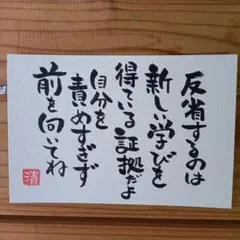 反省するのは
新しい学びを
得ている証拠だよ
自分を
責めすぎず
前を向いてね
清